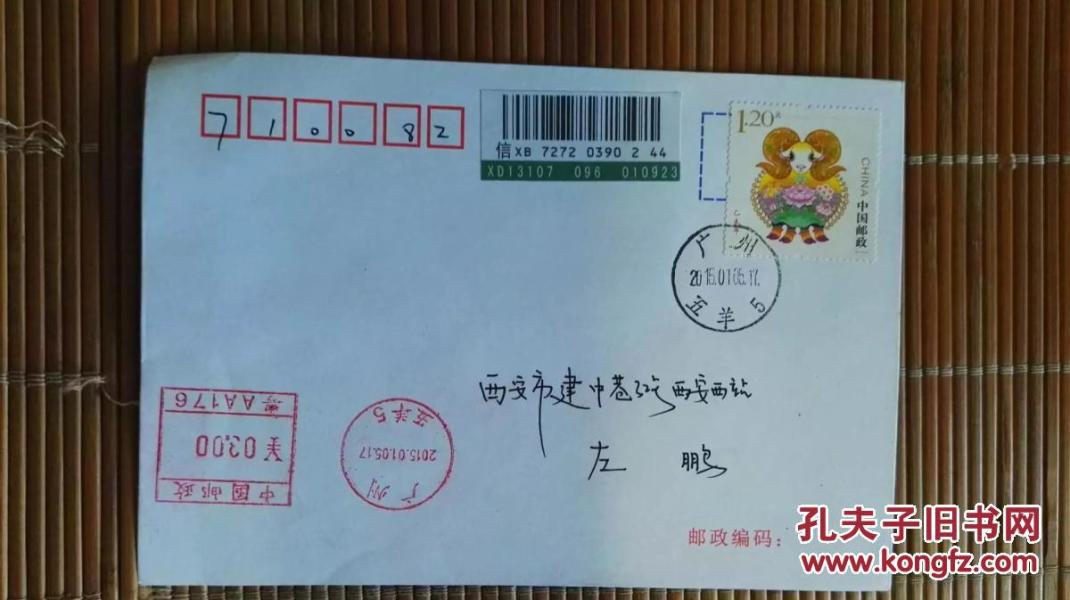 710082
信 XB 7272 0390 2 44
XD13107 096 010923
1.20元
CHINA 中国邮政
乙未
广州
2015.01.05.17
五羊5
西安市建中巷32号西安西站
左 鹏
粤AA176
¥0300
中国邮政
五羊5
2015.01.05.17
广州
邮政编码：
孔夫子旧书网
www.kongfz.com